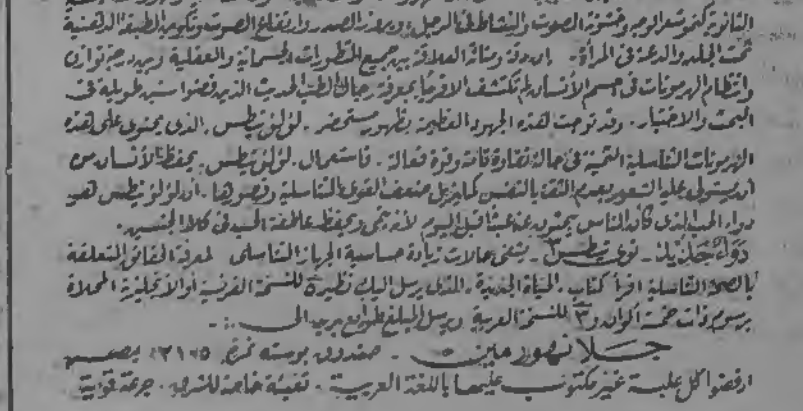 الثانوية كنمو شعر الوجه وخشونة الصوت والنشاط في الرجل وبروز الصدر وارتفاع الصوت وتكوين الطبقة الدهنية
تحت الجلد والدعة في المرأة. إن دقة ومتانة العلاقة بين جميع التطورات الجسمانية والعقلية وبين درجة توازن
وانتظام الهرمونات في جسم الانسان لم تكتشف الا قريبا بمعرفة رجال الطب الحديث الذين قضوا سنين طويلة في
البحث والاختبار. وقد توجت لهذه الجهود العظيمة بظهور مستحضر. لؤلؤ تيطس. الذي يحتوي على هذه
الهرمونات التناسلية الثمينة في حالة نقاوة تامة وقوة فعالة. فاستعمال. لؤلؤ تيطس. يحفظ الأنسان من
أن يستولى عليه الشعور بعدم الثقة بالنفس كما يزيل ضعف القوى التناسلية وقصورها. أن لؤلؤ تيطس هو
دواء الحب الذي كان الناس يبحثون عنه عبثا قبل اليوم لأنه يحمي ويحفظ عاطفة الحب في كلا الجنسين.
دواء جديد. نوى تيطس ٣. يشفي حالات زيادة حساسية الجهاز التناسلي لمعرفة الحقائق المتعلقة
بالصحة التناسلية اقرأ كتاب. الحياة الجنسية. الذي يرسل اليك نظير ٥ للنسخة الفرنسية أو الانجليزية المحلاة
برسوم ذات خمسة ألوان و ٣ للنسخة العربية ويرسل المبلغ طوابع بريد الى :-
جلانهورمين - صندوق بوسته نمرة ٢١٠٥ بمصر
ارفضوا كل علبة غير مكتوب عليها باللغة العربية. تعبئة خاصة للشرق. جرعة قوية